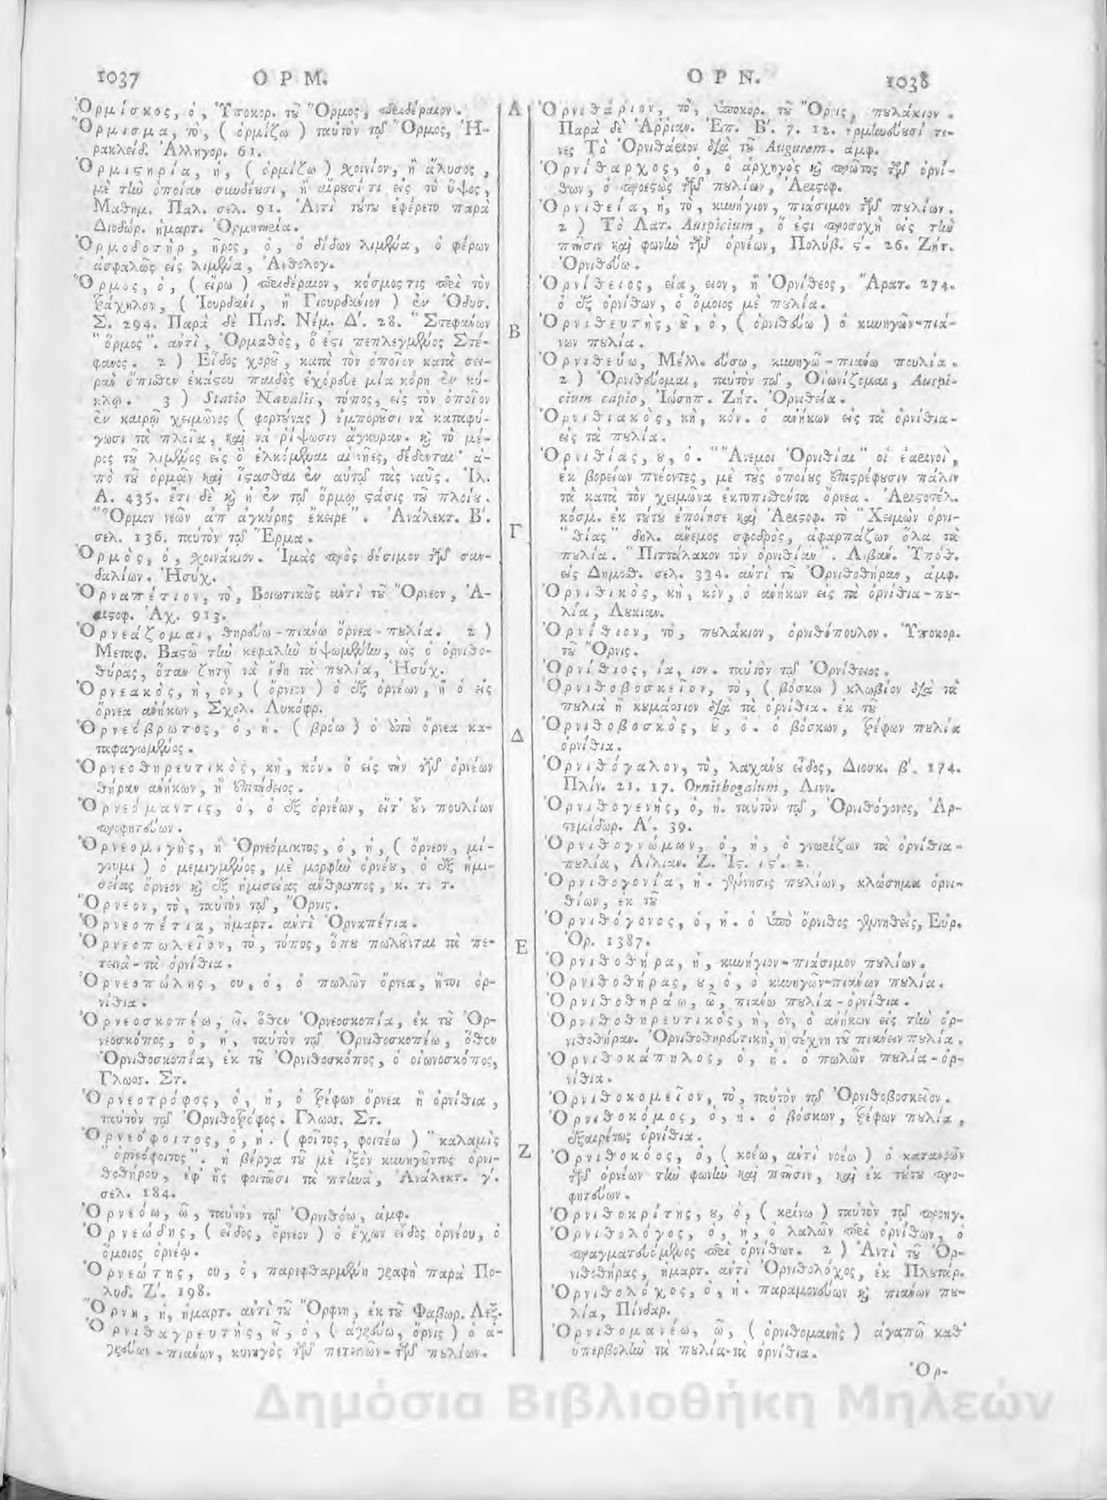 1037 ΟΡΜ.
Ὁρμίσκος, ὁ, Ὑποκορ. τοῦ Ὅρμος, περιδέραιον.
Ὅρμισμα, τὸ, ( ὁρμίζω ) ταὐτὸν τῷ Ὅρμος, Ἡ-
ρακλείδ. Ἀλληγορ. 61.
Ὁρμιστηρία, ἡ, ( ὁρμίζω ) σχοινίον, ἢ ἄλυσος,
μὲ τὴν ὁποίαν συνδέουσι, ἢ αἴρουσί τι εἰς τὸ ὕψος,
Μαθημ. Παλ. σελ. 91. Ἀντὶ τούτου ἐφέρετο παρὰ
Διοδώρ. ἡμαρτ.
Ὁρμοδοτὴρ, ῆρος, ὁ, ὁ δίδων λιμένα, ὁ φέρων
ἀσφαλῶς εἰς λιμένα, Ἀνθολογ.
Ὅρμος, ὁ, ( εἴρω ) περιδέραιον, κόσμος τις περὶ τὸν
τράχηλον, ( Ἰουρδάνι, ἢ Γιουρδάνιον ) ἐν Ὀδυσ.
Σ. 294. Παρὰ δὲ Πινδ. Νέμ. Δ'. 28. "Στεφάνων
"ὅρμος". ἀντὶ, Ὁρμαθὸς, ὅ ἐστι πεπλεγμένος Στέ-
φανος. 2 ) Εἶδος χοροῦ, κατὰ τὸν ὁποῖον κατὰ σει-
ρὰν ὄπιθεν ἑκάστου παιδὸς ἐχόρευε μία κόρη ἐν κύ-
κλῳ. 3 ) Statio Navalis, τόπος, εἰς τὸν ὁποῖον
ἐν καιρῷ χειμῶνος ( φορτούνας ) ἐμποροῦσι νὰ καταφύ-
γωσι τὰ πλοῖα, καὶ νὰ ῥίψωσιν ἄγκυραν. καὶ τὸ μέ-
ρος τοῦ λιμένος εἰς ὃ ἑλκόμεναι αἱ νῆες, δέδενται· ἀ-
πὸ τοῦ ὁρμᾶν καὶ ἵστασθαι ἐν αὐτῷ τὰς ναῦς. Ἰλ.
Α. 435. ἔτι δὲ καὶ ἡ ἐν τῷ ὅρμῳ στάσις τοῦ πλοίου.
"Ὅρμον νεῶν ἀπ' ἀγκύρης ἔκειρε". Ἀνάλεκτ. Β'.
σελ. 136. ταὐτὸν τῷ Ἕρμα.
Ὁρμὸς, ὁ, σχοινάκιον. Ἱμὰς πρὸς δέσιμον τῶν σαν-
δαλίων. Ἡσύχ.
Ὀρναπέτιον, τὸ, Βοιωτικῶς ἀντὶ τοῦ Ὄρνεον, Ἀ-
ριστοφ. Ἀχ. 913.
Ὀρνεάζομαι, θηρεύω-πιάνω ὄρνεα-πουλία. 2 )
Μεταφ. Βαστῶ τὴν κεφαλὴν ὑψωμένην, ὡς ὁ ὀρνιθο-
θήρας, ὅταν ζητῇ νὰ ἴδῃ τὰ πουλία, Ἡσύχ.
Ὀρνεακὸς, ἡ, ὸν, ( ὄρνεον ) ὁ ἐξ ὀρνέων, ἢ ὁ εἰς
ὄρνεα ἀνήκων, Σχολ. Λυκόφρ.
Ὀρνεόβρωτος, ὁ, ἡ. ( βρόω ) ὁ ὑπὸ ὄρνεα κα-
ταφαγωμένος.
Ὀρνεοθηρευτικὸς, κὴ, κόν. ὁ εἰς τὴν τῶν ὀρνέων
θήραν ἀνήκων, ἢ ἐπιτήδειος.
Ὀρνεόμαντις, ὁ, ὁ ἐξ ὀρνέων, εἴτ' οὖν πουλίων
προφητεύων.
Ὀρνεομιγὴς, ἢ Ὀρνεόμικτος, ὁ, ἡ, ( ὄρνεον, μί-
γνυμι ) ὁ μεμιγμένος, μὲ μορφὴν ὀρνέου, ὁ ἐξ ἡμι-
σείας ὄρνεον καὶ ἐξ ἡμισείας ἄνθρωπος, κ. τ. τ.
Ὄρνεον, τὸ, ταὐτὸν τῷ, Ὄρνις.
Ὀρνεοπέτια, ἡμαρτ. ἀντὶ Ὀρναπέτια.
Ὀρνεοπωλεῖον, τὸ, τόπος, ὅπου πωλοῦνται τὰ πε-
τεινὰ-τὰ ὀρνίθια.
Ὀρνεοπώλης, ου, ὁ, ὁ πωλῶν ὄρνεα, ἤτοι ὀρ-
νίθια.
Ὀρνεοσκοπέω, ῶ. ὅθεν Ὀρνεοσκοπία, ἐκ τοῦ Ὀρ-
νεοσκόπος, ὁ, ἡ, ταὐτὸν τῷ Ὀρνιθοσκοπέω, ὅθεν
Ὀρνιθοσκοπία, ἐκ τοῦ Ὀρνιθοσκόπος, ὁ οἰωνοσκόπος,
Γλωσσ. Στ.
Ὀρνεοτρόφος, ὁ, ἡ, ὁ τρέφων ὄρνεα ἢ ὀρνίθια,
ταὐτὸν τῷ Ὀρνιθοτρόφος. Γλωσσ. Στ.
Ὀρνεόφοιτος, ὁ, ἡ. ( φοῖτος, φοιτέω ) "καλαμὶς
"ὀρνεόφοιτος". ἡ βέργα τοῦ μὲ ἰξὸν κυνηγοῦντος ὀρνι-
θοθήρου, ἐφ' ἧς φοιτῶσι τὰ πτηνὰ, Ἀνάλεκτ. γ'.
σελ. 184.
Ὀρνεόω, ῶ, ταὐτὸν τῷ Ὀρνιθόω, ἀμφ.
Ὀρνεώδης, ( εἶδος, ὄρνεον ) ὁ ἔχων εἶδος ὀρνέου, ὁ
ὅμοιος ὀρνέῳ.
Ὀρνεώτης, ου, ὁ, παρεφθαρμένη γραφὴ παρὰ Πο-
λυδ. Ζ'. 198.
Ὄρνη, ἡ, ἡμαρτ. ἀντὶ τοῦ Ὄρφνη, ἐκ τοῦ Φαβωρ. Λεξ.
Ὀρνιθαγρευτὴς, οῦ, ὁ, ( ἀγρεύω, ὄρνις ) ὁ ἀ-
γρεύων-πιάνων, κυνηγὸς τῶν πετεινῶν-τῶν πουλίων.
Α
Β
Γ
Δ
Ε
Ζ
ΟΡΝ. 1038
Ὀρνιθάριον, τὸ, ὑποκορ. τοῦ Ὄρνις, πουλάκιον.
Παρὰ δὲ Ἀῤῥιαν. Ἐπ. Β'. 7. 12. ἑρμηνεύουσί τι-
νες Τὸ Ὀρνιθάριον διὰ τοῦ Augurem. ἀμφ.
Ὀρνιθαρχος, ὁ, ὁ ἀρχηγὸς καὶ πρῶτος τῶν ὀρνί-
θων, ὁ προεστὼς τῶν πουλίων, Ἀριστοφ.
Ὀρνιθεία, ἡ, τὸ, κυνήγιον, πιάσιμον τῶν πουλίων.
2 ) Τὸ Λατ. Auspicium, ὅ ἐστι προσοχὴ εἰς τὴν
πτῆσιν καὶ φωνὴν τῶν ὀρνέων, Πολύβ. ς'. 26. Ζήτ.
Ὀρνιθεύω.
Ὀρνίθειος, εία, ειον, ἢ Ὀρνίθεος, Ἄρατ. 274.
ὁ ἐξ ὀρνίθων, ὁ ὅμοιος μὲ πουλία.
Ὀρνιθευτὴς, οῦ, ὁ, ( ὀρνιθεύω ) ὁ κυνηγῶν-πιά-
νων πουλία.
Ὀρνιθεύω, Μέλλ. εύσω, κυνηγῶ-πιάνω πουλία.
2 ) Ὀρνιθεύομαι, ταὐτὸν τῷ, Οἰωνίζομαι, Auspi-
cium capio, Ἰώσηπ. Ζήτ. Ὀρνιθεία.
Ὀρνιθιακὸς, κὴ, κόν. ὁ ἀνήκων εἰς τὰ ὀρνίθια-
εἰς τὰ πουλία.
Ὀρνιθίας, ου, ὁ. "Ἄνεμοι Ὀρνιθίαι" οἱ ἐαρινοὶ,
ἐκ βορείων πνέοντες, μὲ τοὺς ὁποίους ἐπιστρέφουσιν πάλιν
τὰ κατὰ τὸν χειμῶνα ἐκτοπισθέντα ὄρνεα. Ἀριστοτέλ.
κόσμ. ἐκ τούτου ἐποίησε καὶ Ἀριστοφ. τὸ "Χειμὼν ὀρνι-
"θίας" δηλ. ἄνεμος σφοδρὸς, ἀφαρπάζων ὅλα τὰ
πουλία. "Πιττάλακον τὸν ὀρνιθίαν". Λιβαν. Ὑπόθ.
εἰς Δημοσθ. σελ. 334. ἀντὶ τοῦ Ὀρνιθοθήραν, ἀμφ.
Ὀρνιθικὸς, κὴ, κὸν, ὁ ἀνήκων εἰς τὰ ὀρνίθια-που-
λία, Λυκιαν.
Ὀρνίθιον, τὸ, πουλάκιον, ὀρνιθόπουλον. Ὑποκορ.
τοῦ Ὄρνις.
Ὀρνίθιος, ία, ιον. ταὐτὸν τῷ Ὀρνίθειος.
Ὀρνιθοβοσκεῖον, τὸ, ( βόσκω ) κλωβίον διὰ τὰ
πουλιὰ ἢ κυμάσιον διὰ τὰ ὀρνίθια. ἐκ τοῦ
Ὀρνιθοβοσκὸς, οῦ, ὁ. ὁ βόσκων, τρέφων πουλία
ὀρνίθια.
Ὀρνιθόγαλον, τὸ, λαχάνου εἶδος, Διοσκ. β'. 174.
Πλίν. 21. 17. Ornithogalum, Λινν.
Ὀρνιθογενὴς, ὁ, ἡ. ταὐτὸν τῷ, Ὀρνιθόγονος, Ἀρ-
τεμίδωρ. Α'. 39.
Ὀρνιθογνώμων, ὁ, ἡ, ὁ γνωρίζων τὰ ὀρνίθια-
πουλία, Αἰλιαν. Ζ. Ἱστ. ις'. 2.
Ὀρνιθογονία, ἡ. γέννησις πουλίων, κλώσημα ὀρνι-
θίων, ἐκ τοῦ
Ὀρνιθόγονος, ὁ, ἡ. ὁ ὑπὸ ὄρνιθος γεννηθεὶς, Εὐρ.
Ὀρ. 1387.
Ὀρνιθοθήρα, ἡ, κυνήγιον-πιάσιμον πουλίων.
Ὀρνιθοθήρας, ου, ὁ, ὁ κυνηγῶν-πιάνων πουλία.
Ὀρνιθοθηράω, ῶ, πιάνω πουλία-ὀρνίθια.
Ὀρνιθοθηρευτικὸς, ἡ, ὸν, ὁ ἀνήκων εἰς τὴν ὀρ-
νιθοθήραν. Ὀρνιθοθηρευτικὴ, ἡ τέχνη τοῦ πιάνειν πουλία.
Ὀρνιθοκάπηλος, ὁ, ἡ. ὁ πωλῶν πουλία-ὀρ-
νίθια.
Ὀρνιθοκομεῖον, τὸ, ταὐτὸν τῷ Ὀρνιθοβοσκεῖον.
Ὀρνιθοκόμος, ὁ, ἡ. ὁ βόσκων, τρέφων πουλία,
ἐξαιρέτως ὀρνίθια.
Ὀρνιθοκόος, ὁ, ( κοέω, ἀντὶ νοέω ) ὁ κατανοῶν
τῶν ὀρνέων τὴν φωνὴν καὶ πτῆσιν, καὶ ἐκ τούτου προ-
φητεύων.
Ὀρνιθοκρίτης, ου, ὁ, ( κρίνω ) ταὐτὸν τῷ προηγ.
Ὀρνιθολόγος, ὁ, ἡ, ὁ λαλῶν περὶ ὀρνίθων, ὁ
πραγματευόμενος περὶ ὀρνίθων. 2 ) Ἀντὶ τοῦ Ὀρ-
νιθοθήρας, ἡμαρτ. ἀντὶ Ὀρνιθολόχος, ἐκ Πλουτάρ.
Ὀρνιθολόχος, ὁ, ἡ. παραμονεύων καὶ πιάνων που-
λία, Πίνδαρ.
Ὀρνιθομανέω, ῶ, ( ὀρνιθομανὴς ) ἀγαπῶ καθ'
ὑπερβολὴν τὰ πουλία-τὰ ὀρνίθια.
Ὀρ-
Δημόσια Βιβλιοθήκη Μηλεών